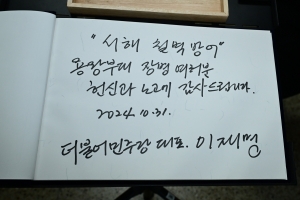 "서해 철벽 방어"
용왕부대 장병 여러분
헌신과 노고에 감사드립니다.
2024. 10. 31.
더불어민주당 대표 이재명